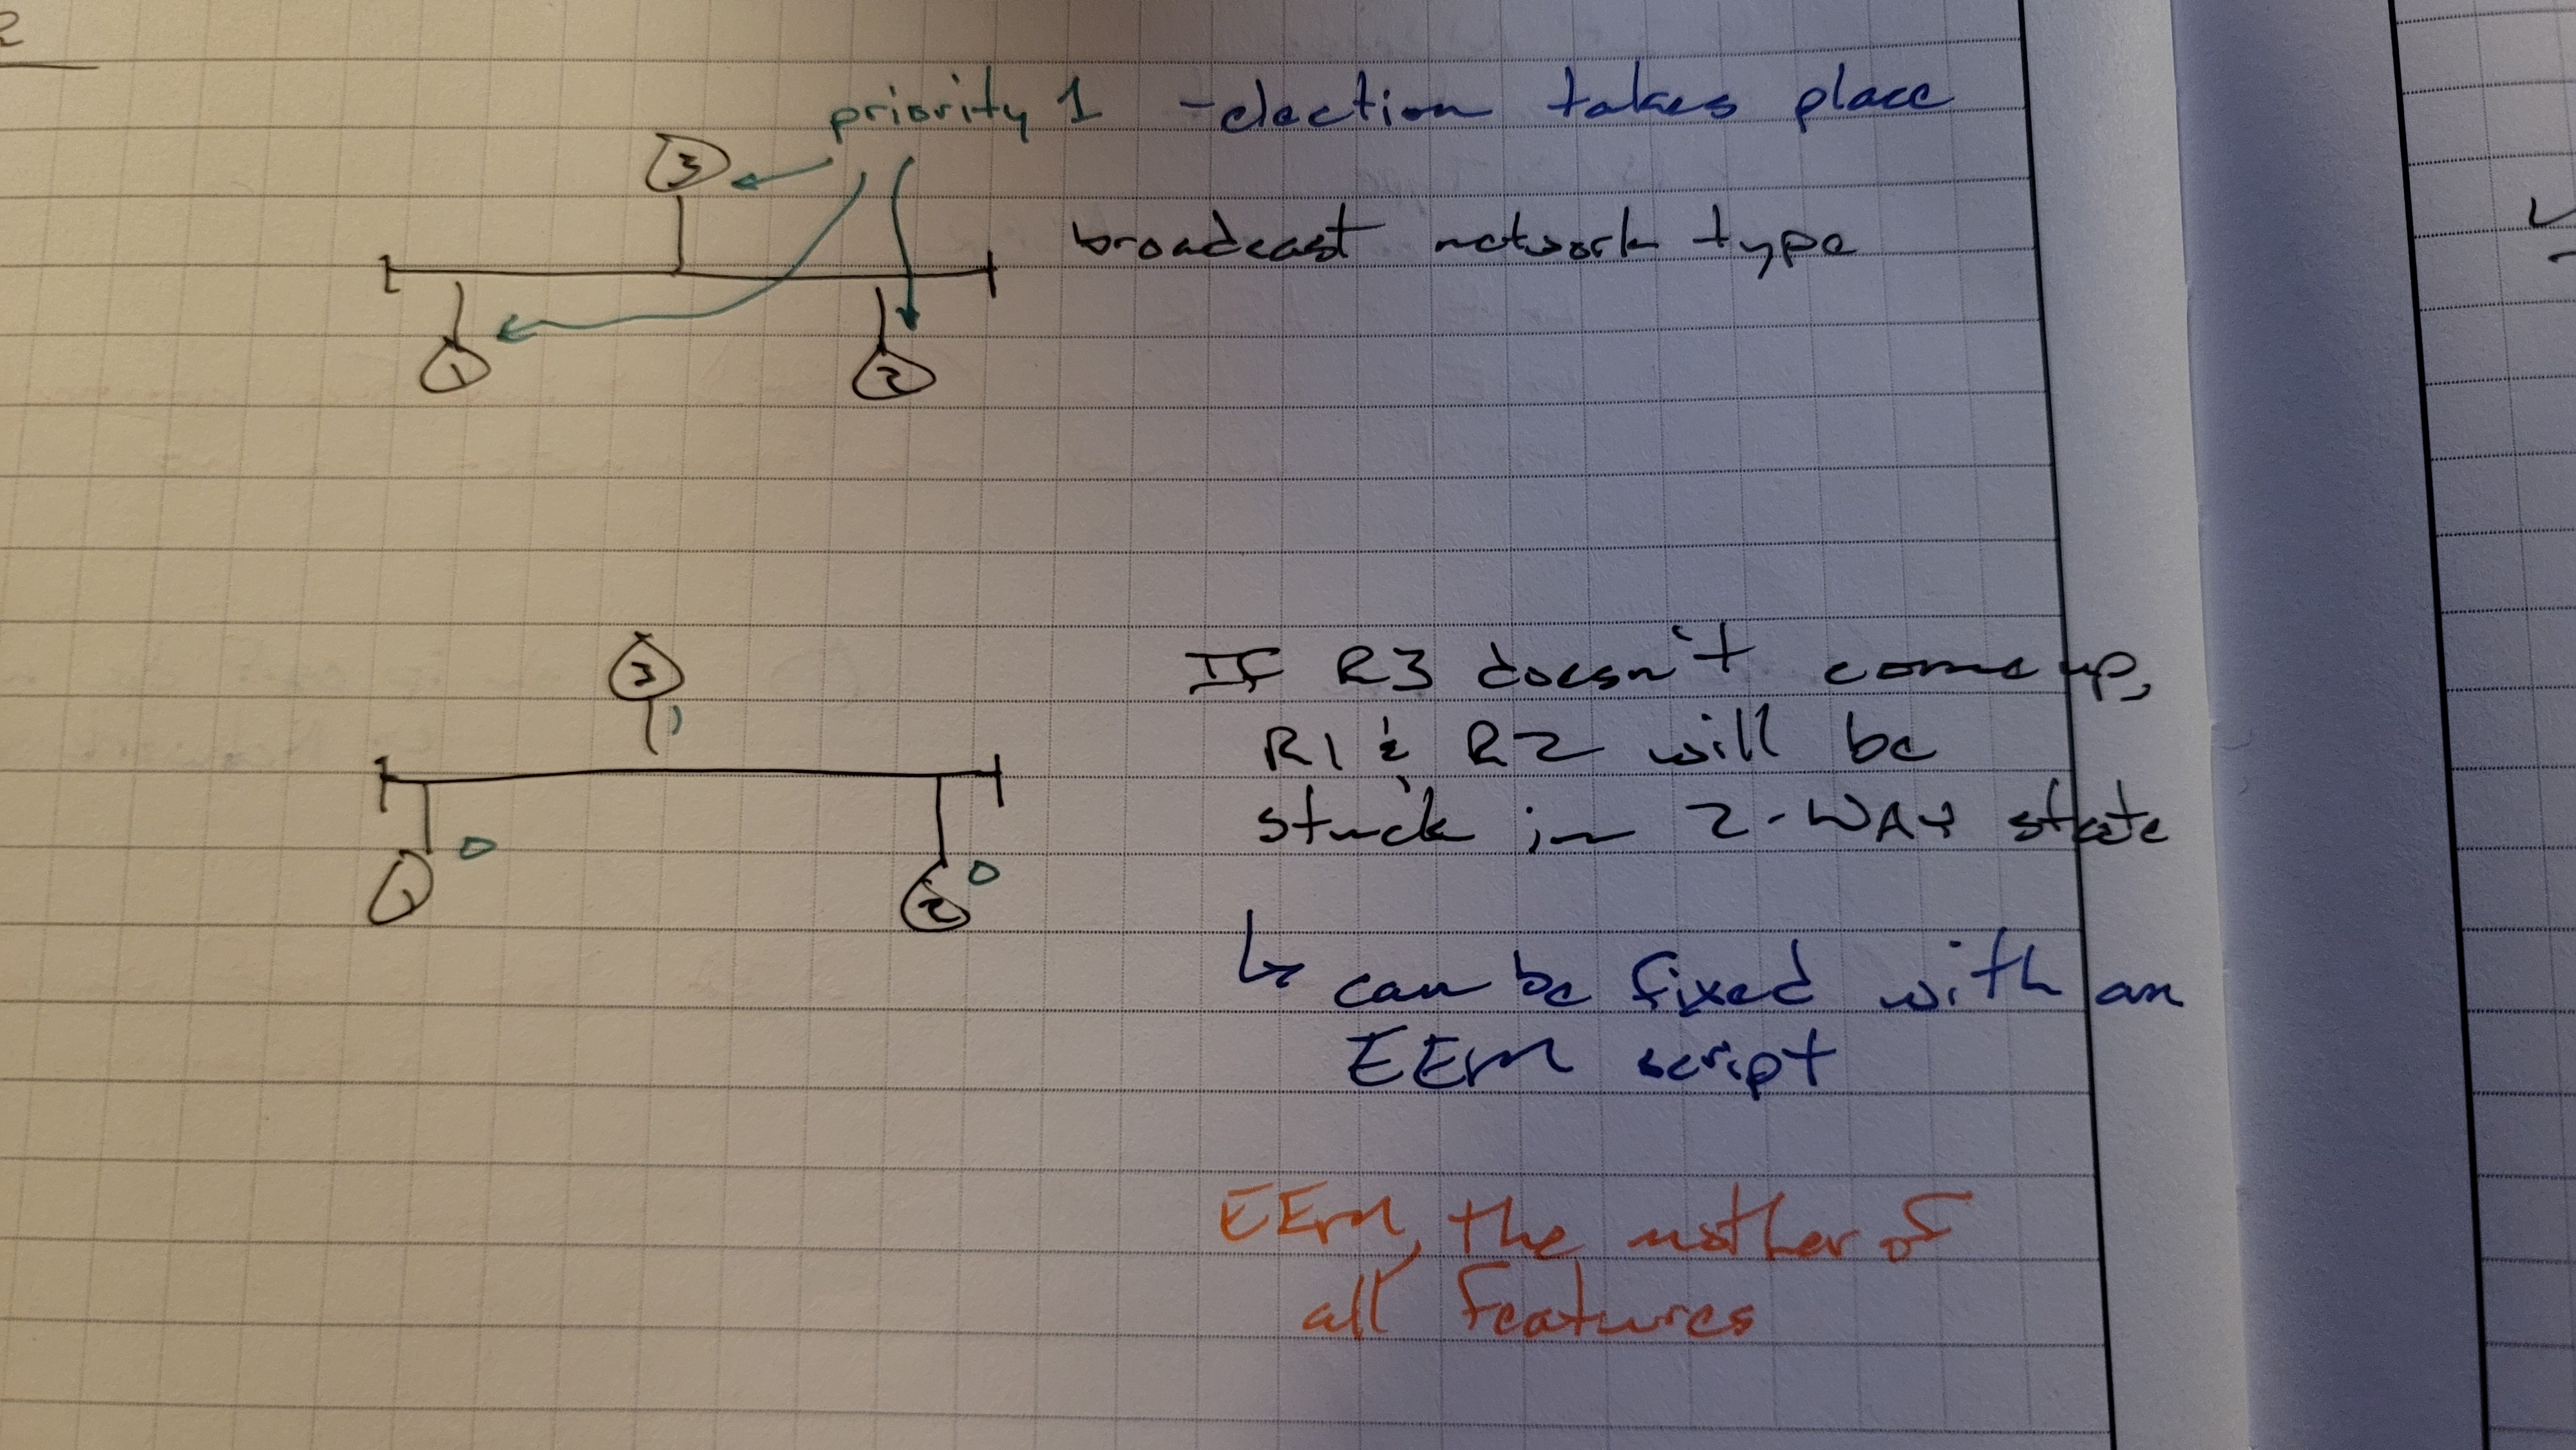 2
priority 1 - election takes place
3
broadcast network type
1
2
3
1
If R3 doesn't come up,
R1 & R2 will be
stuck in 2-WAY state
0
0
1
2
↳ can be fixed with an
EEM script
EEM, the mother of
all features